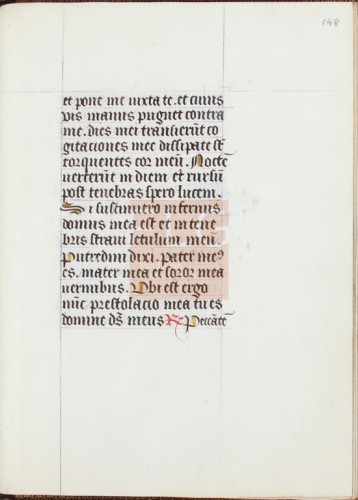 148
et pone me iuxta te. et cuius
vis manus pugnet contra
me. dies mei transierūt co
gitaciones mee dissipate sūt
torquentes cor meū. Nocte
verterūt in diem et rursū
post tenebras spero lucem.
Si sustinuero infernus
domus mea est et in tene
bris stravi letulum meū.
Putredini dixi. pater meꝰ
es. mater mea et soror mea
vermibus. Ubi est ergo
nūc prestolacio mea tu es
domine ds̄ meus R̷ Peccātē